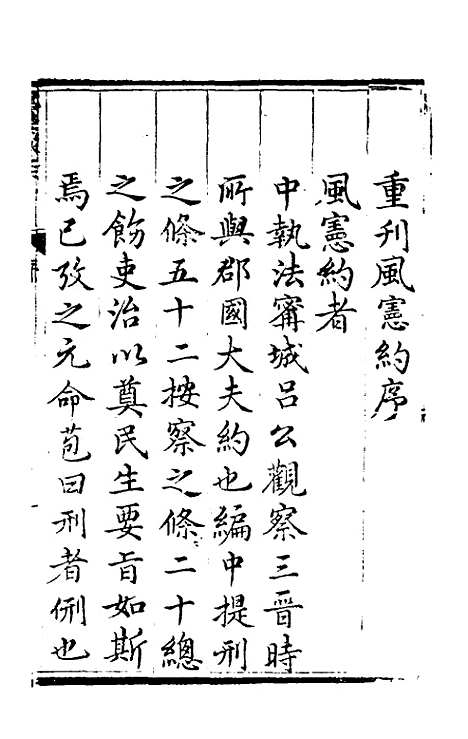 重刊風憲約序
風憲約者
中執法甯城呂公觀察三晋時
所與郡國大夫約也編中提刑
之條五十二按察之條二十總
之飭吏治以奠民生要旨如斯
焉已攷之元命苞曰刑者侀也